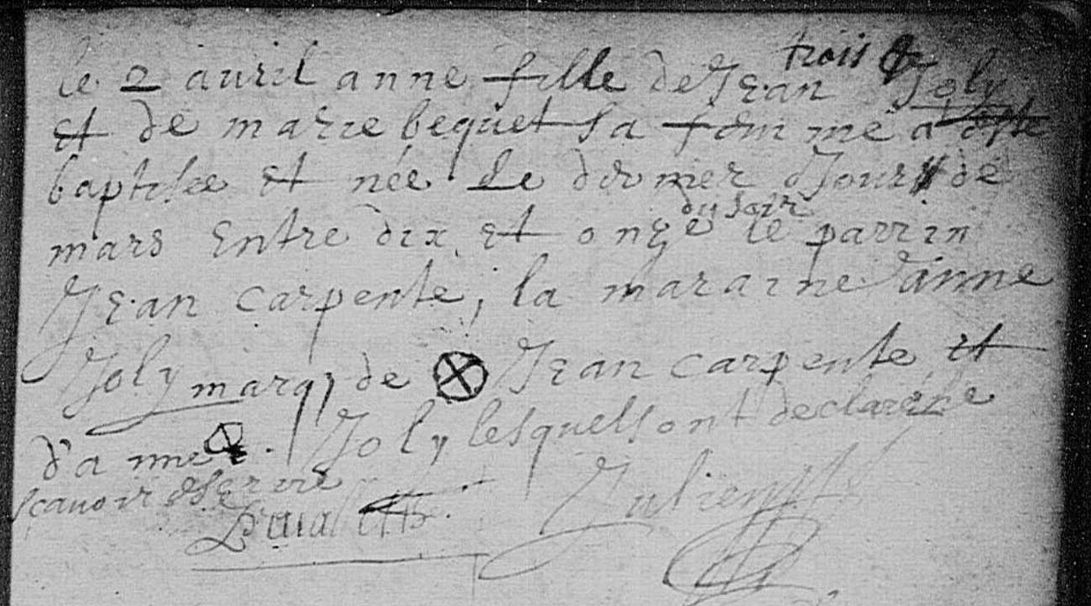 trois
le 2 auril anne fille de Jean Joly
et de marie bequet sa femme a este
baptisee et née le dernier Jour de
du soir
mars Entre dix et onze le parrin
Jean carpente, la maraine anne
Joly marq de Jean carpente et
d'anne Joly lesquels ont declaré ne
scavoir escrire
Julien